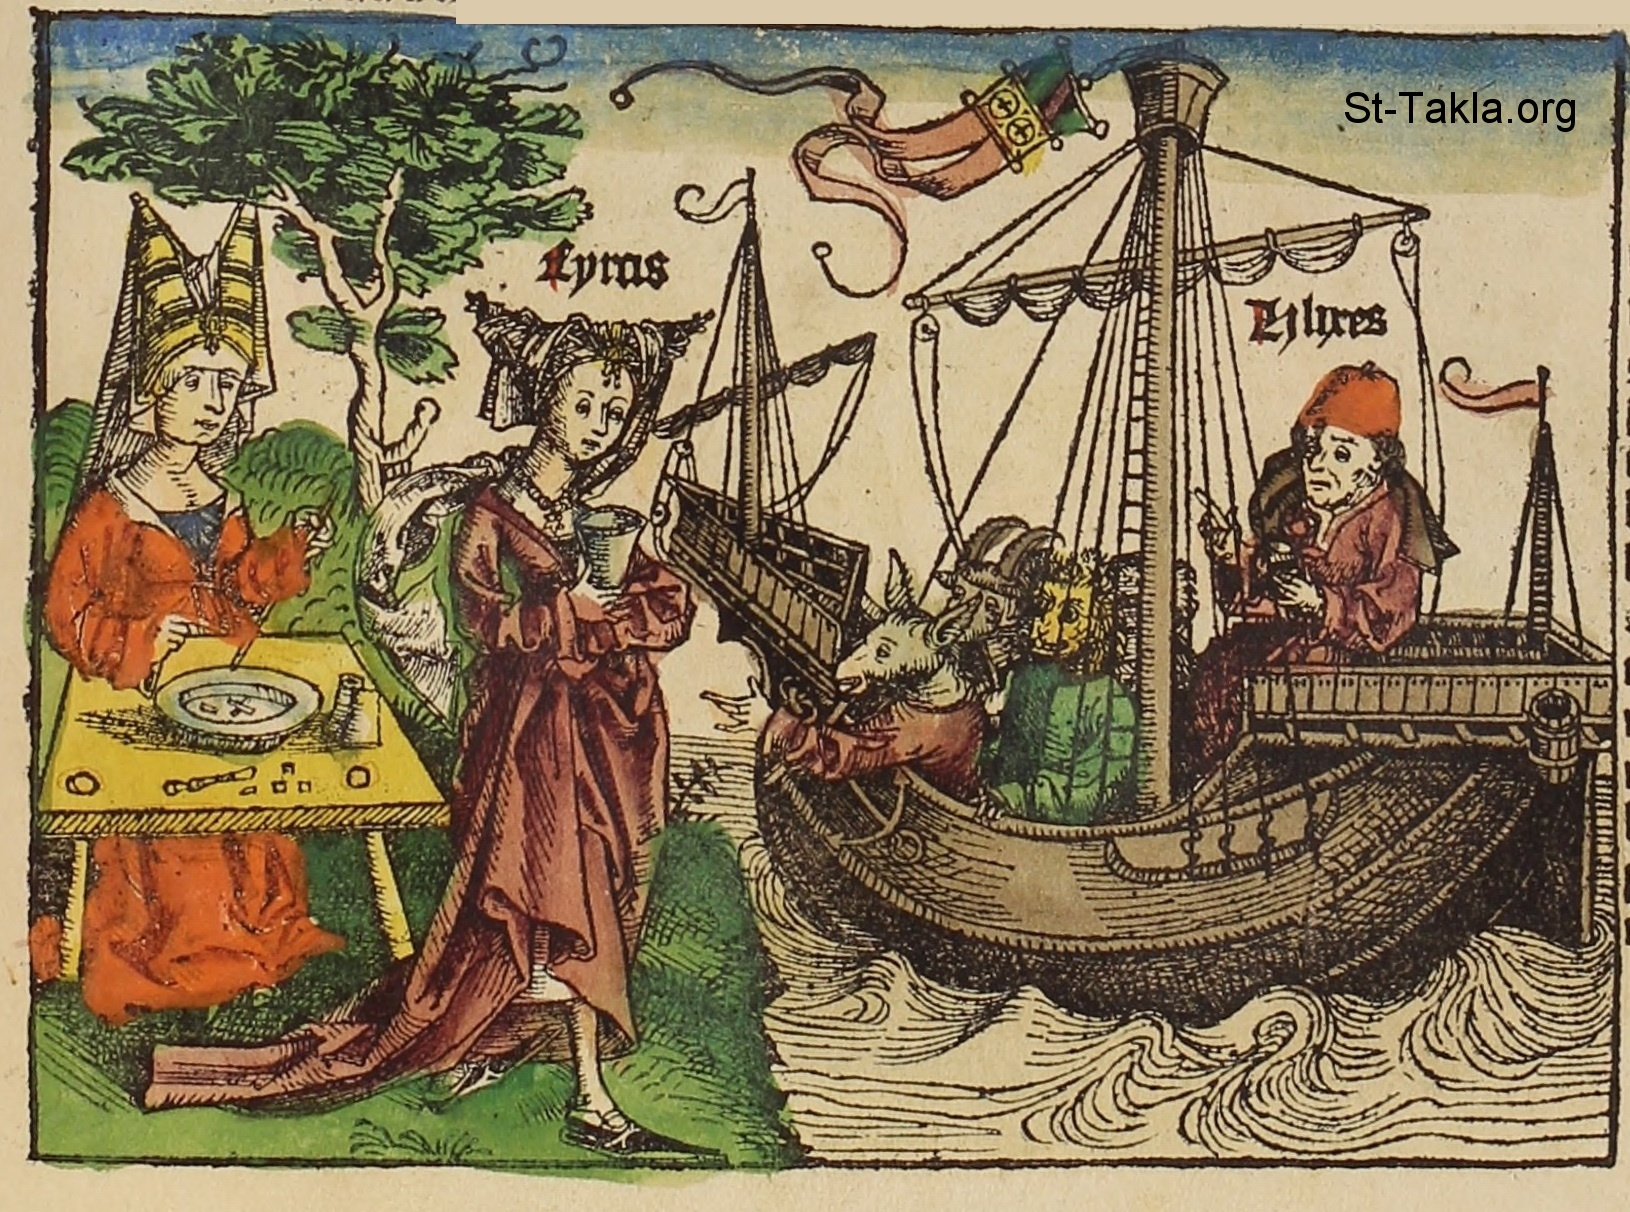 St-Takla.org
Cyrcis
Vlixes